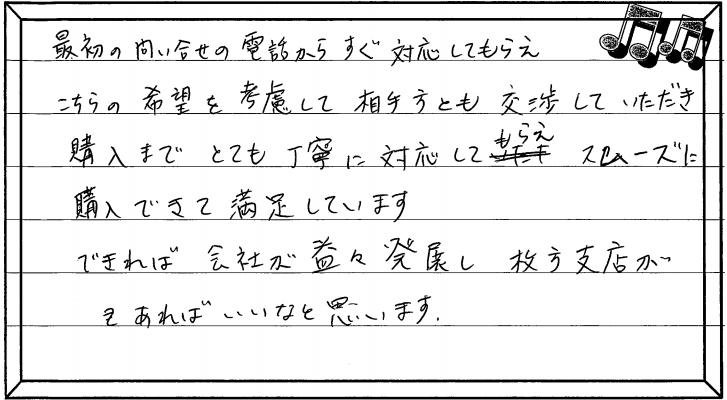 最初の問い合せの電話からすぐ対応してもらえ
こちらの希望を考慮して相手方とも交渉していただき
購入までとても丁寧に対応してもらえ スムーズに
購入できて満足しています
できれば会社が益々発展し 枚方支店が
あればいいなと思います.